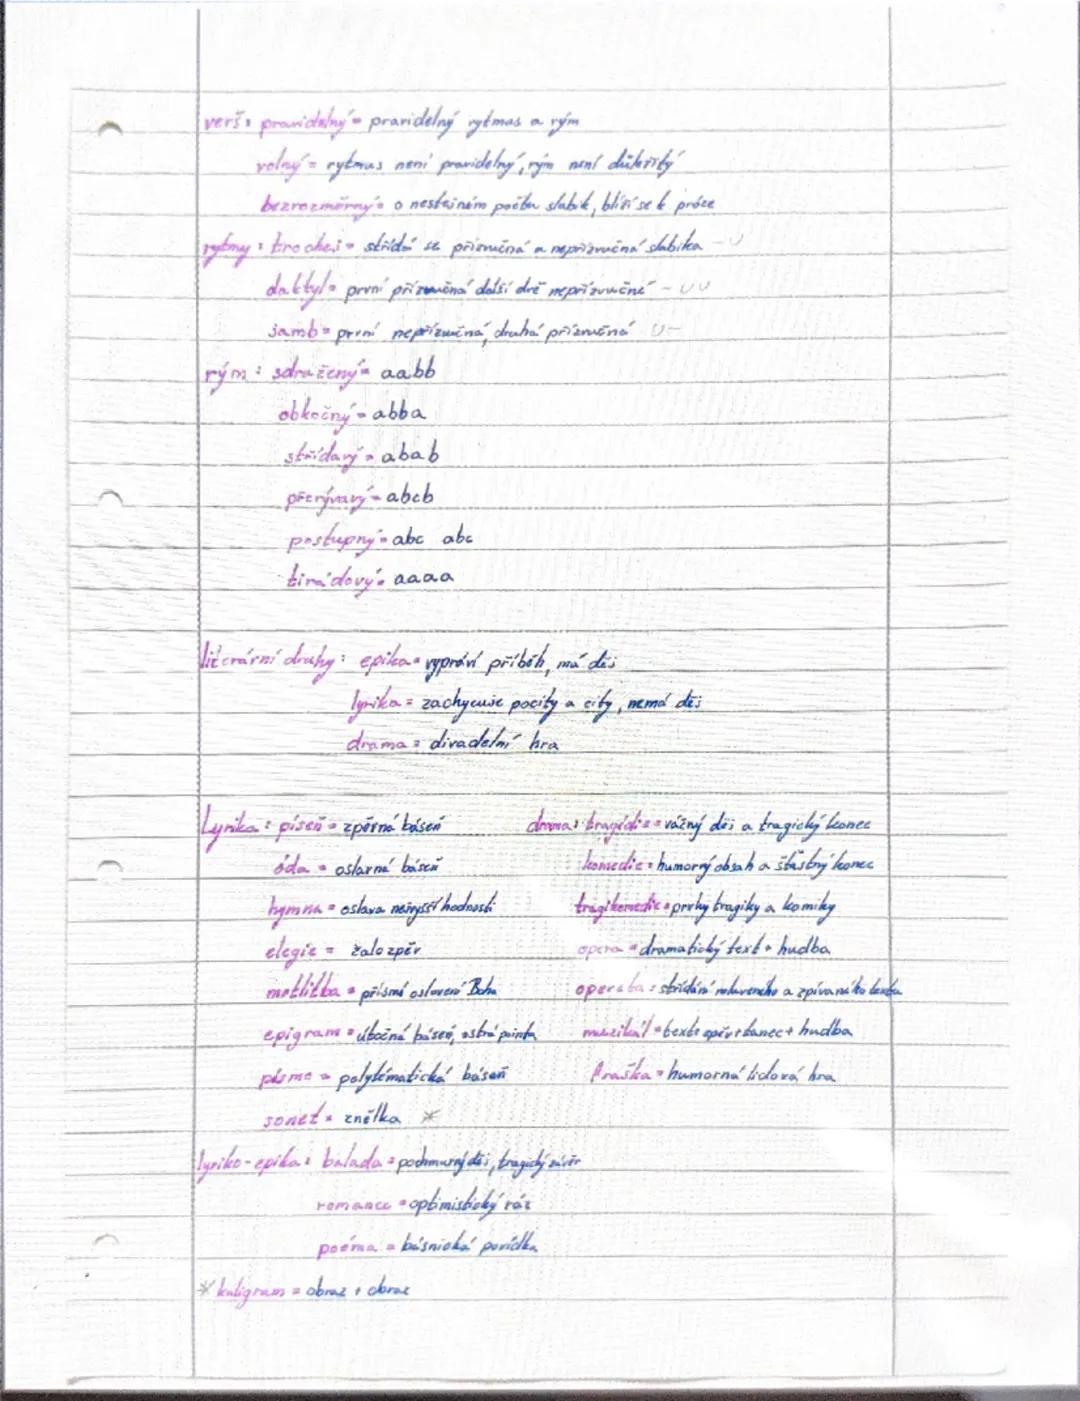 verš: pravidelný = pravidelný rytmus a rým
volný = rytmus není pravidelný, rým není důležitý
bezrozměrný = o nestejném počtu slabik, blíží se k próze
rytmy: trochej = střídá se přízvučná a nepřízvučná slabika – ∪
daktyl = první přízvučná další dvě nepřízvučné – ∪∪
jamb = první nepřízvučná, druhá přízvučná ∪ –
rým: sdružený = aabb
obkočný = abba
střídavý = abab
přerývavý = abcb
postupný = abc abc
tirádový = aaaa
literární druhy: epika = vypráví příběh, má děj
lyrika = zachycuje pocity a city, nemá děj
drama = divadelní hra
Lyrika: píseň = zpěvná báseň
óda = oslavná báseň
hymna = oslava nejvyšší hodnosti
elegie = žalozpěv
motlitba = přísmé oslovení Boha
epigram = útočná báseň, ostrá pointa
pásmo = polytématická báseň
sonet = znělka *
drama: tragédie = vážný děj a tragický konec
komedie = humorný obsah a šťastný konec
tragikomedie = prvky tragiky a komiky
opera = dramatický text + hudba
opereta = střídání mluveného a zpívaného textu
muzikál = text + zpěv + tanec + hudba
fraška = humorná lidová hra
lyriko-epika: balada = pochmurný děj, tragický závěr
romance = optimistický ráz
poéma = básnická povídka
* kaligram = obraz + obraz